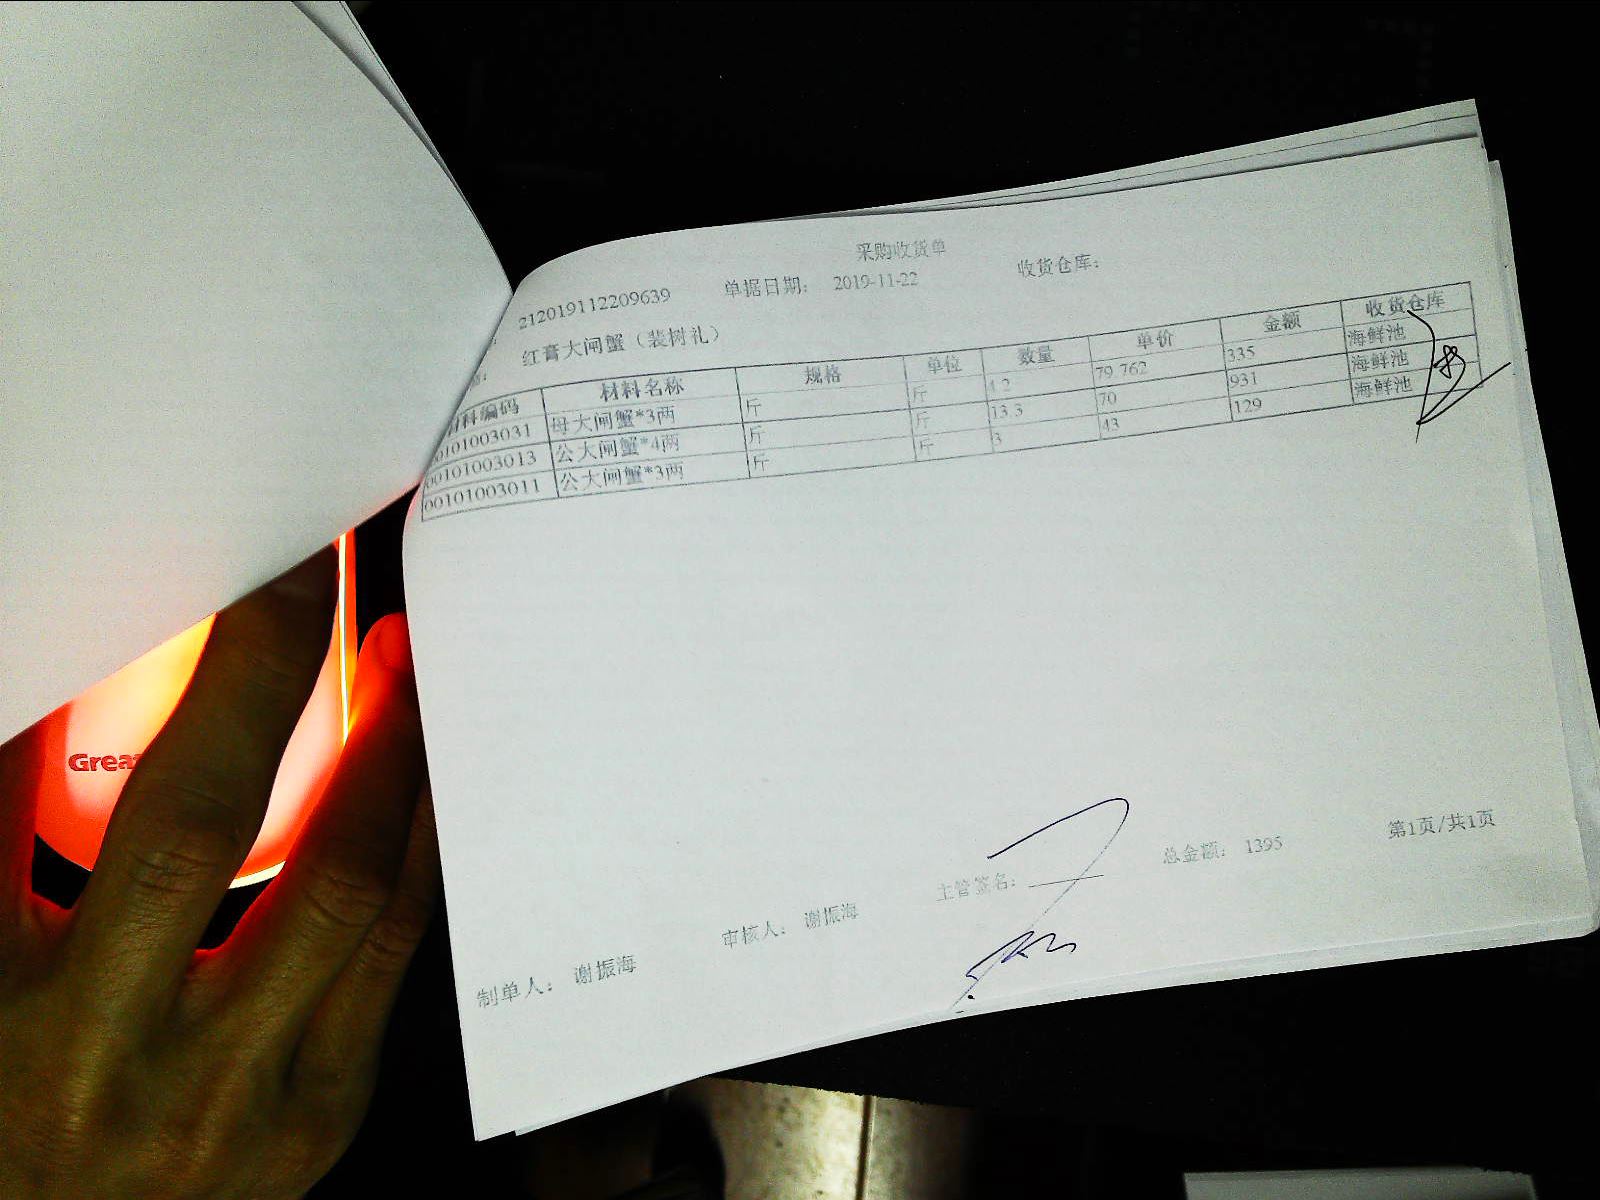 采购收货单
212019112209639 单据日期: 2019-11-22 收货仓库:
红膏大闸蟹（裴树礼）
材料编码 材料名称 规格 单位 数量 单价 金额 收货仓库
00101003031 母大闸蟹*3两 斤 斤 4.2 79.762 335 海鲜池
00101003013 公大闸蟹*4两 斤 斤 13.3 70 931 海鲜池
00101003011 公大闸蟹*3两 斤 斤 3 43 129 海鲜池
制单人: 谢振海 审核人: 谢振海 主管签名: 总金额: 1395 第1页/共1页
Grea